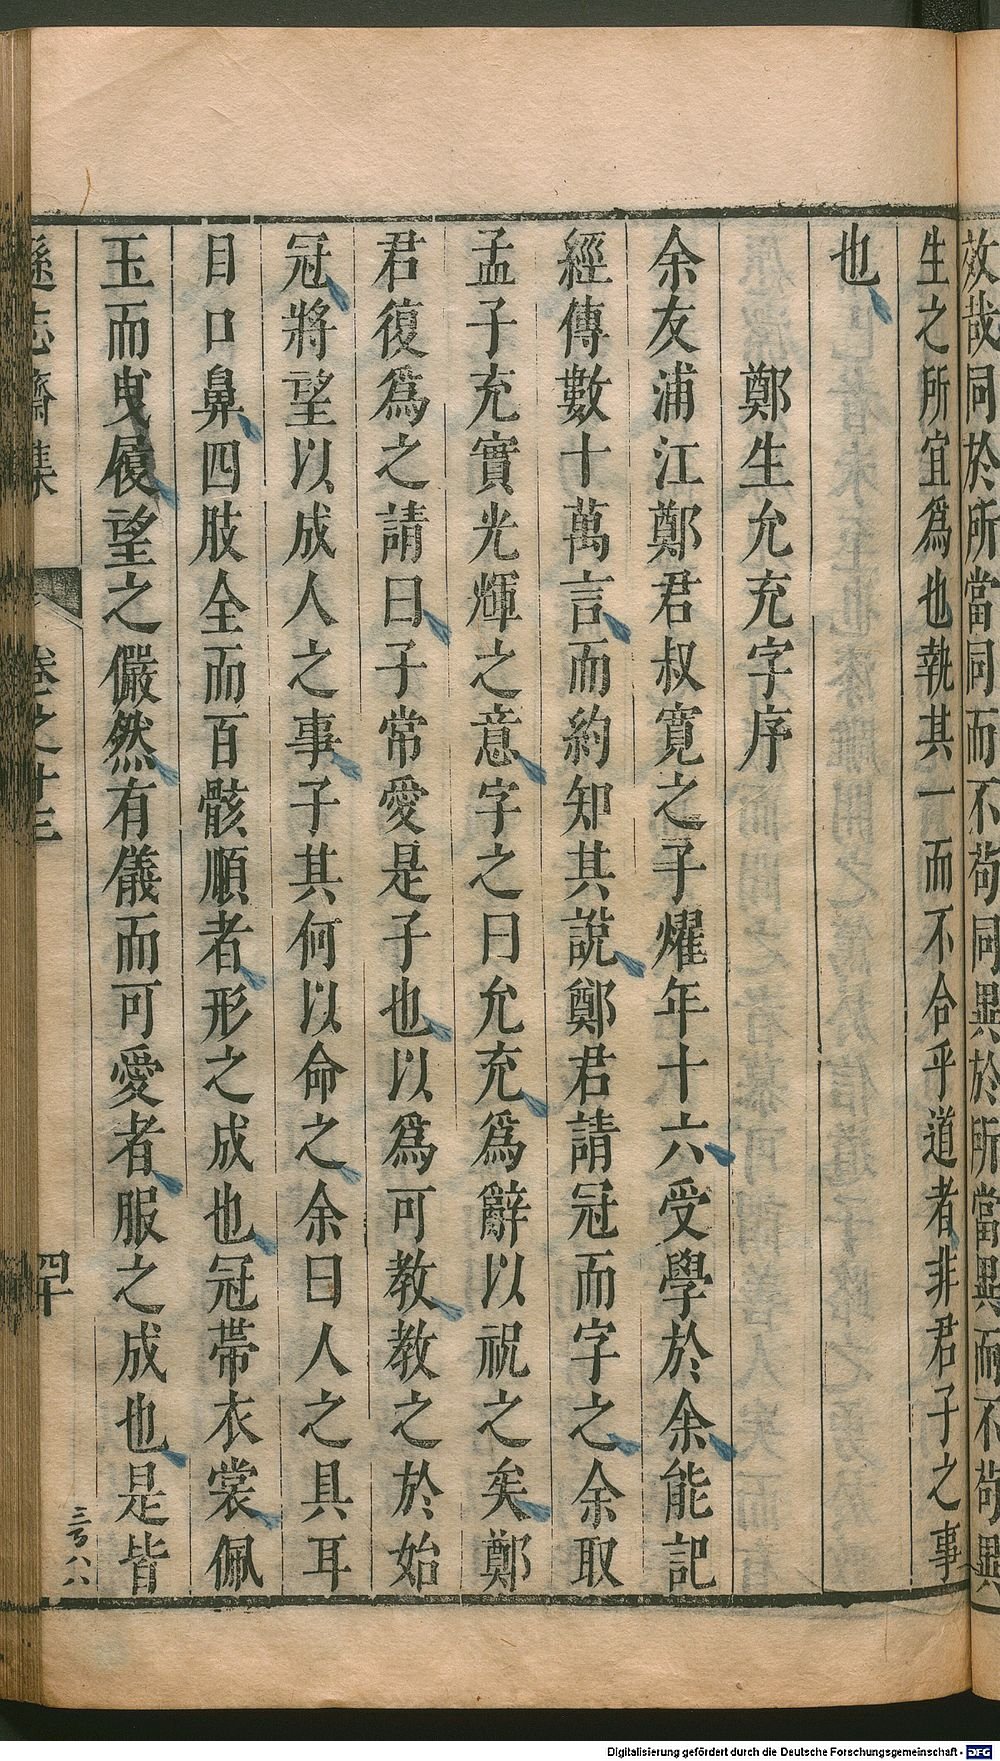 效哉同於所當同而不苟同異於所當異而不苟異
生之所宜爲也執其一而不合乎道者非君子之事
也
鄭生允充字序
余友浦江鄭君叔寬之子燿年十六受學於余能記
經傳數十萬言而約知其說鄭君請冠而字之余取
孟子充實光輝之意字之曰允充爲辭以祝之矣鄭
君復爲之請曰子常愛是子也以爲可教教之於始
冠將望以成人之事子其何以命之余曰人之具耳
目口鼻四肢全而百骸順者形之成也冠帶衣裳佩
玉而曳履望之儼然有儀而可愛者服之成也是皆
遜志齋集 卷之十三 四十
三百八八
Digitalisierung gefördert durch die Deutsche Forschungsgemeinschaft - DFG